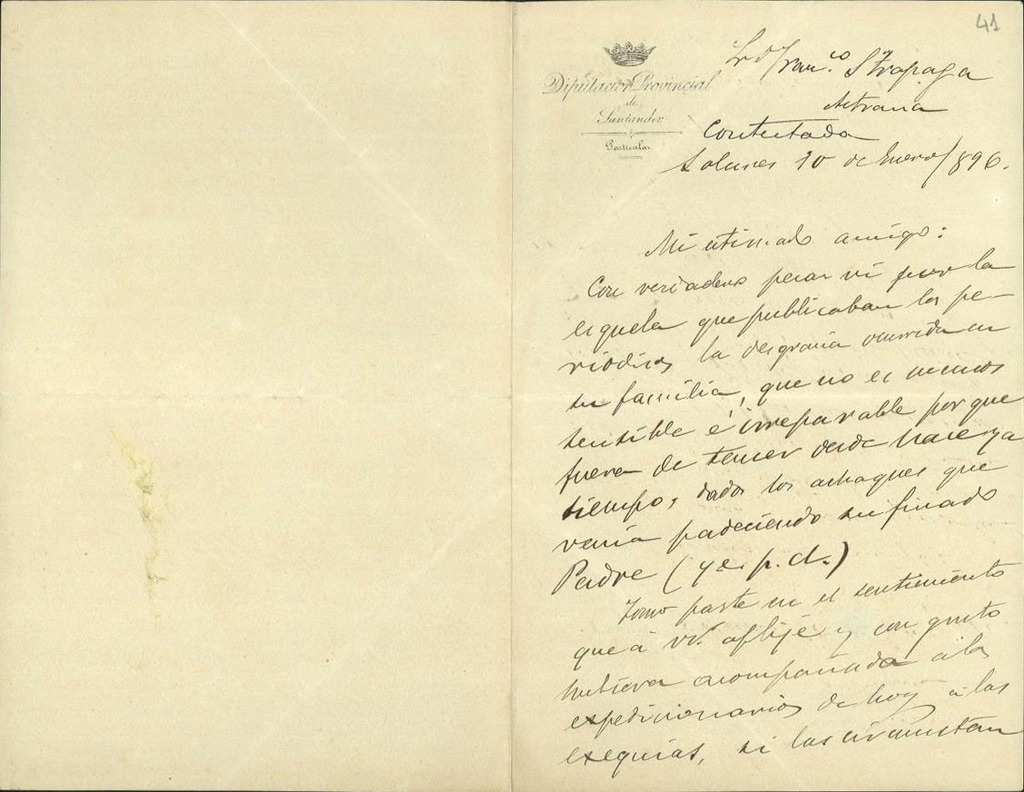 41
Sr. D. Fran.co
Diputación Provincial
de
Santander
Particular
Contestada
Solares 20 de Enero/896.
Mi estimado amigo:
Con verdadero pesar vi por la
esquela que publicaban los pe-
riódicos la desgracia ocurrida en
su familia, que no es menos
sensible é irreparable porque
fuera de temer desde hace ya
tiempo, dados los achaques que
venía padeciendo su finado
Padre (q. e. p. d.)
Tomo parte en el sentimiento
que á Vd. aflije y con gusto
hubiera acompañado á los
expedicionarios de hoy á las
exequias, si las circunstan